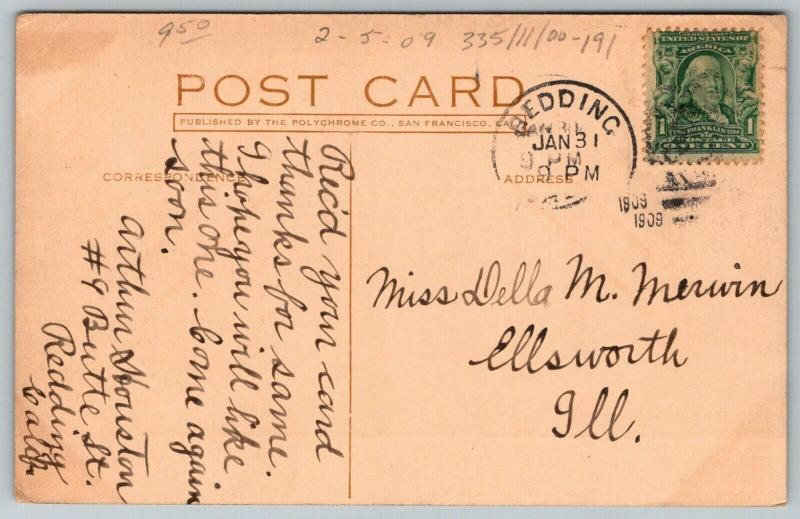 950
2-5-09 335/11/00-191
POST CARD
PUBLISHED BY THE POLYCHROME CO., SAN FRANCISCO, CAL.
CORRESPONDENCE
ADDRESS
SERIES 1902
UNITED STATES OF
AMERICA
1 FRANKLIN 1
POSTAGE
ONE CENT
REDDING
JAN 31
JAN 31
9 PM
9 PM
1909
1909
Rec'd your card
thanks for same.
I hope you will like
this one. Come again
soon.
Arthur Houston
#9 Butte St.
Redding
Calif.
Miss Della M. Merwin
Ellsworth
Ill.